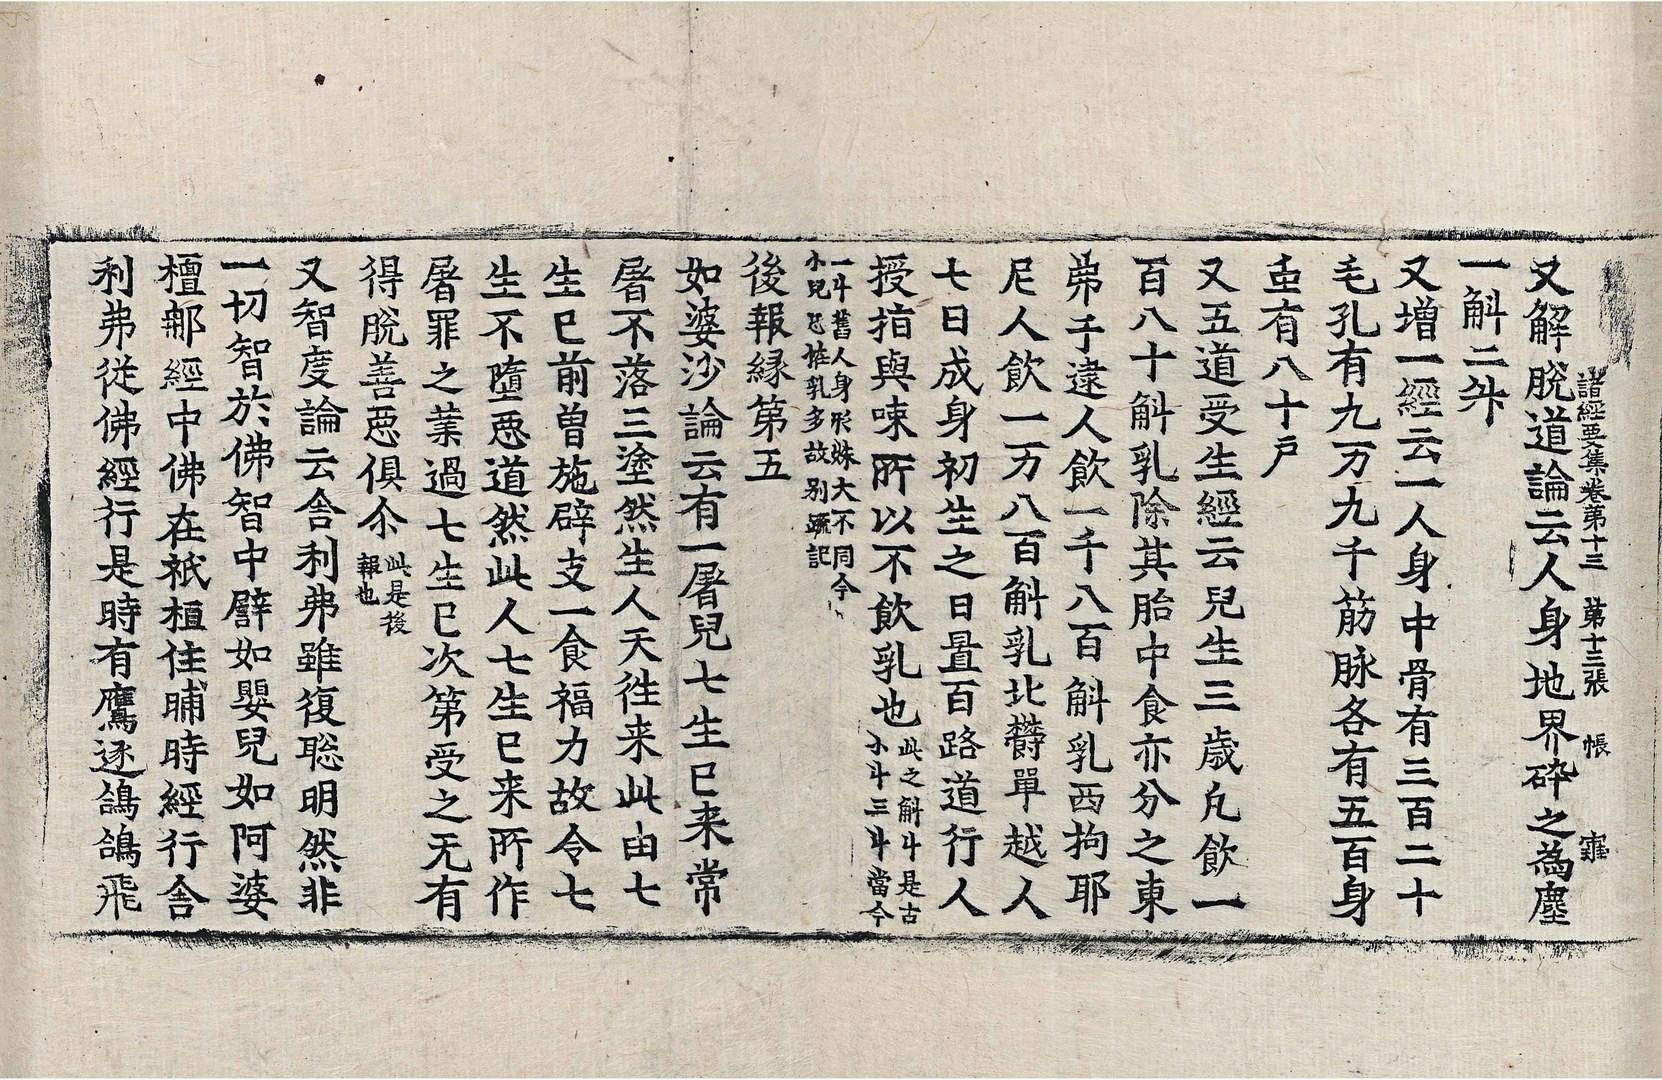 諸經要集卷第十三 第十三張 帳
又解脫道論云人身地界碎之為塵
一斛二升
又增一經云一人身中骨有三百二十
毛孔有九万九千筋脉各有五百身
䖝有八十戶
又五道受生經云兒生三歲凡飲一
百八十斛乳除其胎中食亦分之東
弟于逮人飲一千八百斛乳西拘耶
尼人飲一万八百斛乳北欝單越人
七日成身初生之日置百路道行人
授指與㖒所以不飲乳也此之斛斗是古
小斗三斗當今
一斗舊人身形姝大不同今
小兒㔾推乳多故別䟽記
後報緣第五
如婆沙論云有一屠兒七生已来常
屠不落三塗然生人天徃来此由七
生已前曾施辟支一食福力故令七
生不墮惡道然此人七生已来所作
屠罪之業過七生已次第受之无有
得脫善惡俱尒此是後
報也
又智度論云舍利弗雖復聡明然非
一切智於佛智中譬如嬰兒如阿婆
檀那經中佛在祇桓住晡時經行舍
利弗從佛經行是時有鷹逐鴿鴿飛